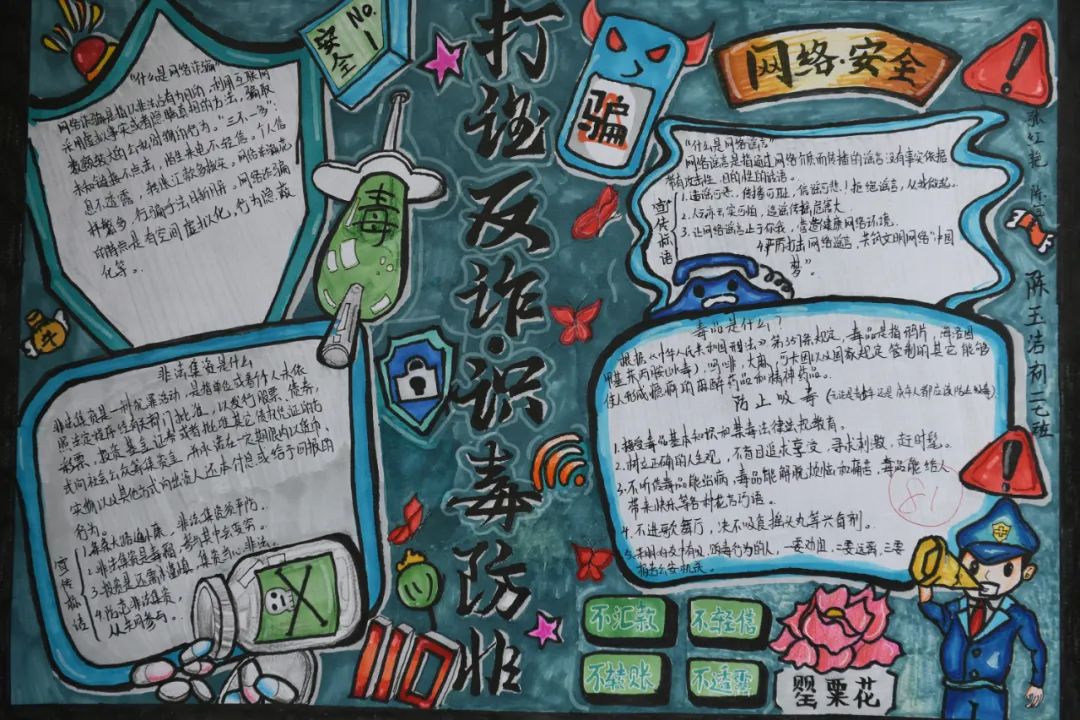 安全
No.
1
打谣反诈·识毒防非
骗
网络·安全
毒
"什么是网络诈骗"
网络诈骗是指以非法占有为目的,利用互联网
采用虚拟事实或者隐瞒真相的方法,骗取
数额较大的公私财物的行为。"三不一多":
未知链接不点击,陌生来电不轻信,个人信
息不透露,转账汇款多核实。网络诈骗花
样繁多,行骗手法日新月异。网络诈骗
的特点是有空间虚拟化,行为隐蔽
化等。
"什么是网络谣言"
网络谣言是指通过网络介质而传播的谣言没有事实依据
带有攻击性、目的性的话语。
宣传标语
1.造谣可恶、传谣可耻,信谣可悲!拒绝谣言,从我做起。
3.让网络谣言止于你我,营造健康网络环境。
4.严厉打击网络谣言,共筑文明网络"中国
梦"。
非法集资是什么
非法集资是一种犯罪活动,是指单位或者个人未依
照法定程序经有关部门批准,以发行股票、债券,
彩票,投资基金证券或者其他债权凭证的方
式向社会公众筹集资金,并承诺在一定期限内以货币,
实物以及其他方式向出资人还本付息或给予回报的
行为。
宣传标语
3.投资是还需谨慎,集资当心非法。
4.防范非法集资。
从去向参与。
毒品是什么?
根据《中华人民共和国刑法》第357条规定,毒品是指鸦片,海洛因
甲基苯丙胺(冰毒),吗啡,大麻,可卡因以及国家规定管制的其它能够
使人形成瘾癖的麻醉药品和精神药品。
防止吸毒
1.接受毒品基本知识和禁毒法律法规教育。
2.树立正确的人生观,不盲目追求享受,寻求刺激,赶时髦。
3.不听信毒品能治病,毒品能解脱烦恼和痛苦,毒品能给人
带来快乐等各种花言巧语。
4.不进歌舞厅,决不吸食摇头丸等兴奋剂。
81
110
不汇款
不轻信
不转账
不透露
罂粟花
张红艳
陈玉洁
初二七班